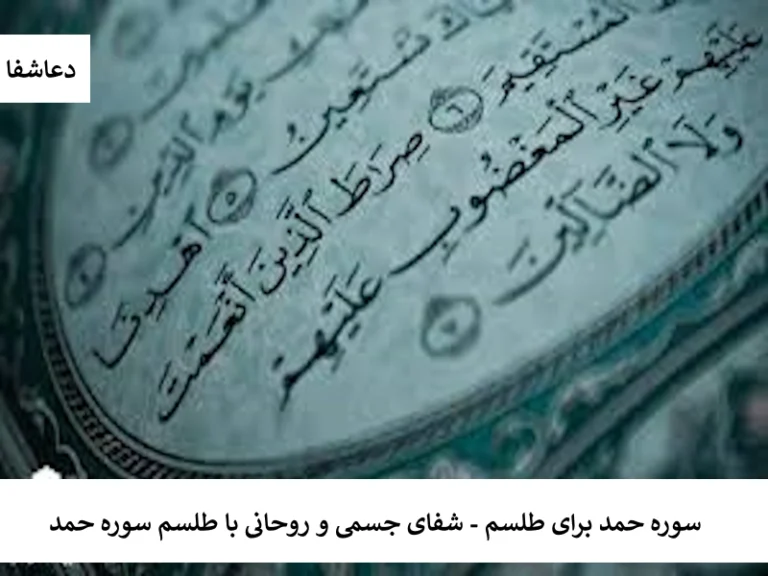 دعاشفا
يَوْمِ ٱلدِّينِ ٤
نَسْتَعِينُ ٥ ٱهْدِنَا
ٱلْمُسْتَقِيمَ ٦ صِرَٰطَ ٱلَّذِينَ أَنْعَمْتَ
عَلَيْهِمْ غَيْرِ ٱلْمَغْضُوبِ عَلَيْهِمْ
وَلَا ٱلضَّآلِّينَ ٧
سوره حمد برای طلسم - شفای جسمی و روحانی با طلسم سوره حمد